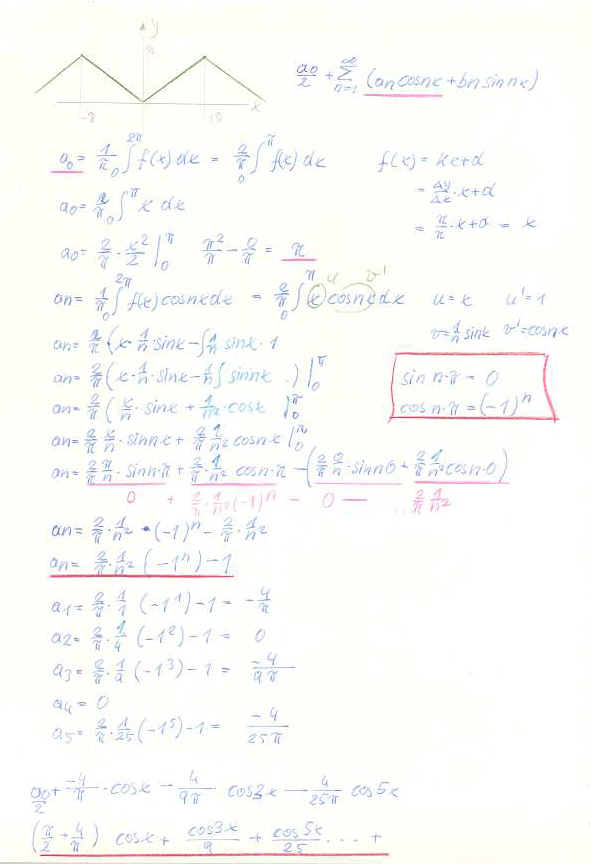 y
π
-π π x
a0/2 + ∞Σn=1 (an cosnx + bn sin nx)
a0 = 1/π 0∫2π f(x) dx = 2/π 0∫π f(x) dx f(x) = kx+d
a0 = 2/π 0∫π x dx = Δy/Δx · x+d
= π/π · x+0 = x
a0 = 2/π · x²/2 |0π π²/π - 0/π = π
u v'
an = 1/π 0∫2π f(x) cosnx dx = 2/π 0∫π x cosnx dx u = x u' = 1
an = 2/π (x · 1/n · sinx - ∫1/n sinx · 1 v = 1/n sinx v' = cosnx
an = 2/π (x · 1/n · sinx - 1/n ∫ sinnx .) |0π sin n·π = 0
an = 2/π (x/n · sinx + 1/n² · cosx )0π cos n·π = (-1)^n
an = 2/π x/n · sinnx + 2/π 1/n² cosnx |0π
an = 2/π π/n · sinn·π + 2/π · 1/n² cosn·π - (2/π 0/n · sinn0 + 2/π 1/n² cosn·0)
0 + 2/π · 1/n² (-1)^n - 0 — 2/π 1/n²
an = 2/π · 1/n² · (-1)^n - 2/π · 1/n²
an = 2/π · 1/n² (-1^n) - 1
a1 = 2/π · 1/1 (-1^1) - 1 = -4/π
a2 = 2/π · 1/4 (-1²) - 1 = 0
a3 = 2/π · 1/9 (-1³) - 1 = -4/9π
a4 = 0
a5 = 2/π · 1/25 (-1^5) - 1 = -4/25π
a0/2 + -4/π · cosx - 4/9π cos3x - 4/25π cos5x
(π/2 - 4/π) cosx + cos3x/9 + cos5x/25 ... +